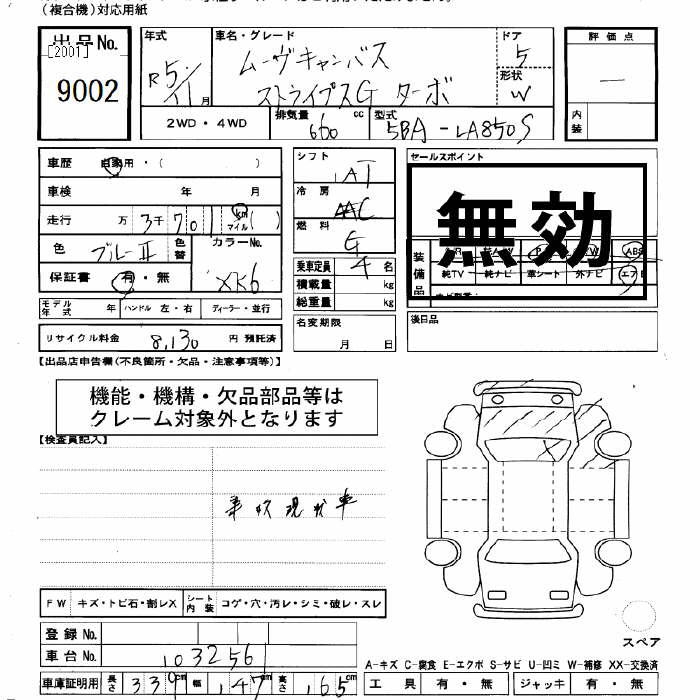 （複合機）対応用紙
出品No. [2001] 9002
年式 R5/11月
車名・グレード ムーヴキャンバス ストライプスG ターボ
ドア 5
形状 W
2WD・4WD
排気量 660 cc
型式 5BA-LA850S
評価点 —
内装
車歴 自家用・( )
車検 年 月
走行 万 3千701 km マイル ( )
色 ブルーⅡ 色替
カラーNo. XK6
保証書 有・無
モデル年式 年 ハンドル 左・右 ディーラー・並行
リサイクル料金 8,130 円 預託済
シフト AT
冷房 AAC
燃料 G
乗車定員 4 名
積載量 kg
総重量 kg
名変期限 月 日
セールスポイント
無効
装備品
ABS
純TV 純ナビ 革シート 外ナビ エアB
後日品
【出品店申告欄(不良箇所・欠品・注意事項等)】
機能・機構・欠品部品等は
クレーム対象外となります
【検査員記入】
事故現状車
FW キズ・トビ石・割レX シート内装 コゲ・穴・汚レ・シミ・破レ・スレ
登録No.
車台No. 103256
車庫証明用 長さ 339cm 幅 147cm 高さ 165cm
スペア
A-キズ C-腐食 E-エクボ S-サビ U-凹ミ W-補修 XX-交換済
工具 有・無 ジャッキ 有・無